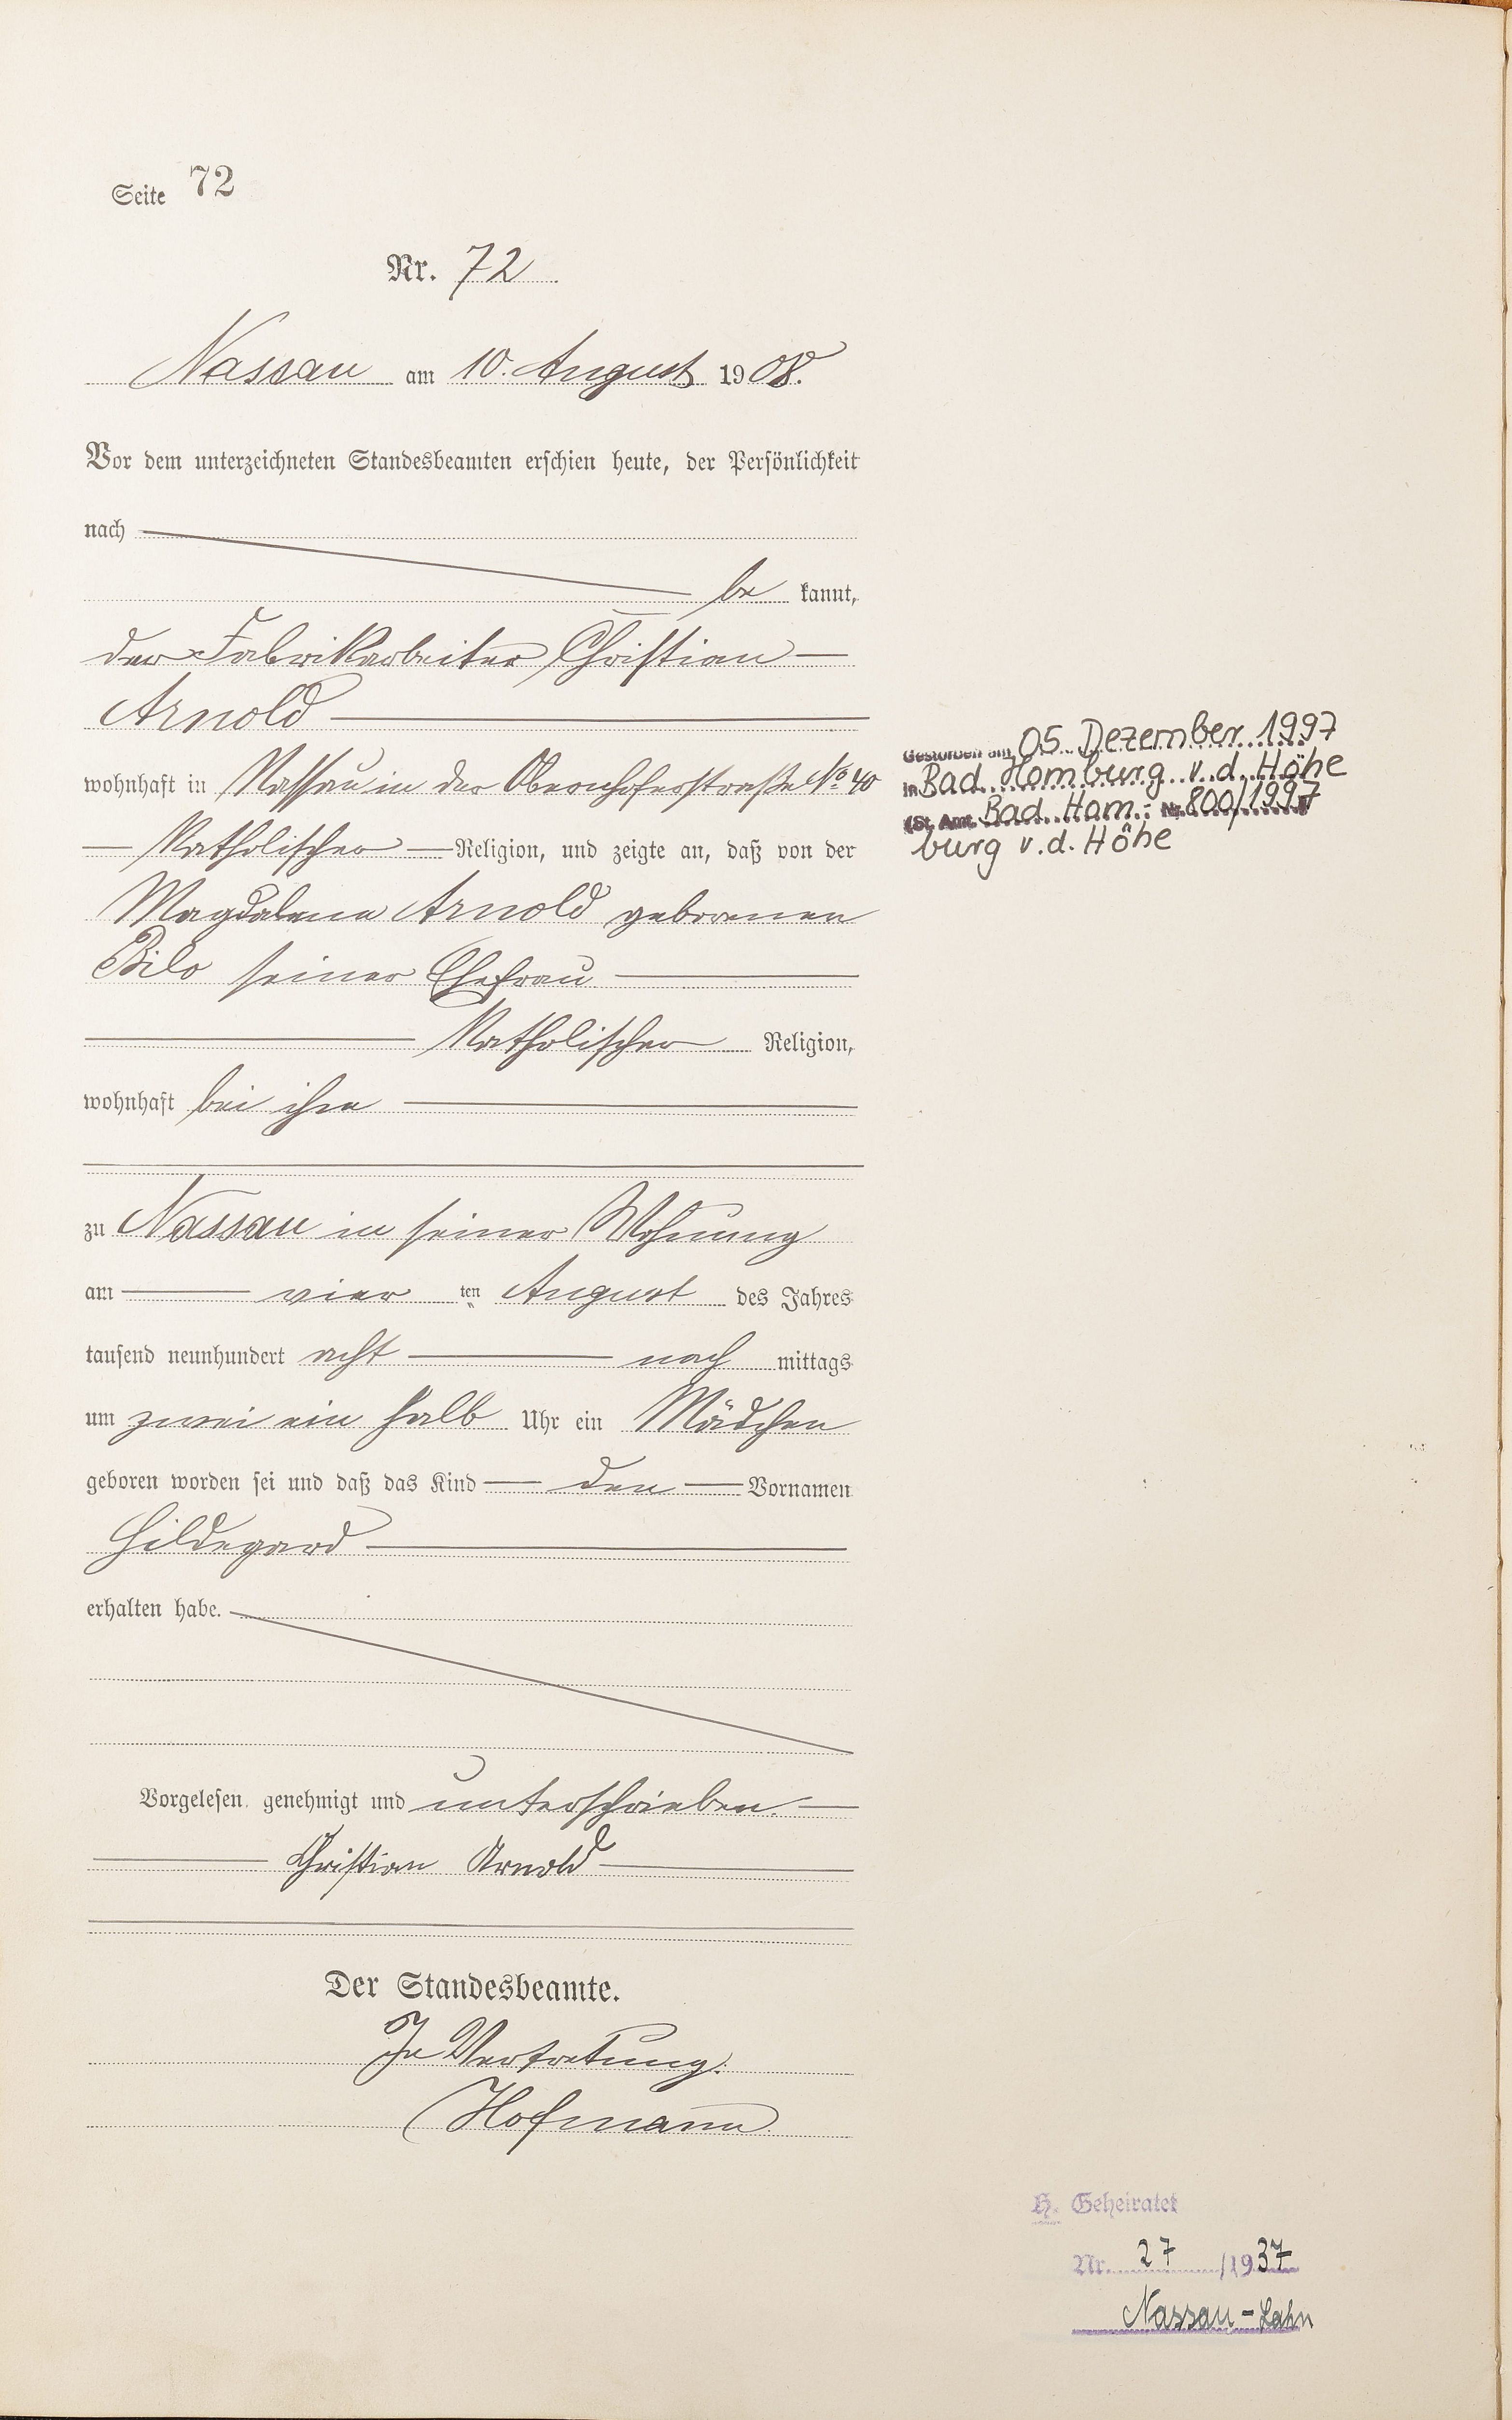 Seite 72
Nr. 72
Nassau am 10. August 1908.
Vor dem unterzeichneten Standesbeamten erschien heute, der Persönlichkeit
nach
be kannt,
der Fabrikarbeiter Christian
Arnold
wohnhaft in Nassau in der Obernhoferstraße No. 40
Katholischer Religion, und zeigte an, daß von der
Magdalena Arnold geborenen
Bilo seiner Ehefrau
Katholischer Religion,
wohnhaft bei ihm
zu Nassau in seiner Wohnung
am vier ten August des Jahres
tausend neunhundert acht nach mittags
um zwei ein halb Uhr ein Mädchen
geboren worden sei und daß das Kind den Vornamen
Hildegard
erhalten habe.
Vorgelesen, genehmigt und unterschrieben.
Christian Arnold
Der Standesbeamte.
In Vertretung.
Hofmann
Gestorben am 05. Dezember 1997
in Bad Homburg v. d. Höhe
(St. Amt Bad Hom- Nr. 800/1997
burg v. d. Höhe
H. Geheiratet
Nr. 27 /1937
Nassau-Lahn